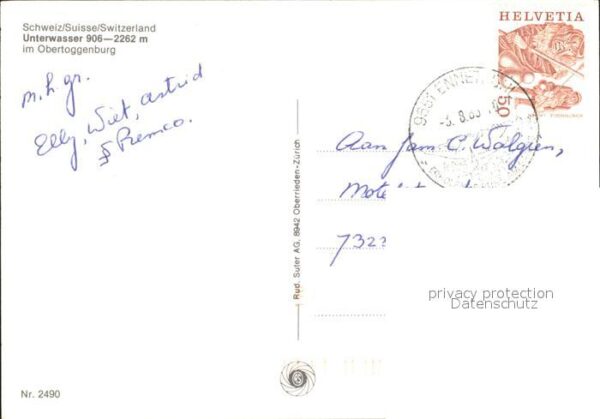 Schweiz/Suisse/Switzerland
Unterwasser 906—2262 m
im Obertoggenburg
HELVETIA
50
m.h.gr.
Elly, Wiet, Astrid
& Remco.
Aan fam C. Walgien,
Mote
732
Rud. Suter AG, 8942 Oberrieden-Zürich
privacy protection
Datenschutz
Nr. 2490